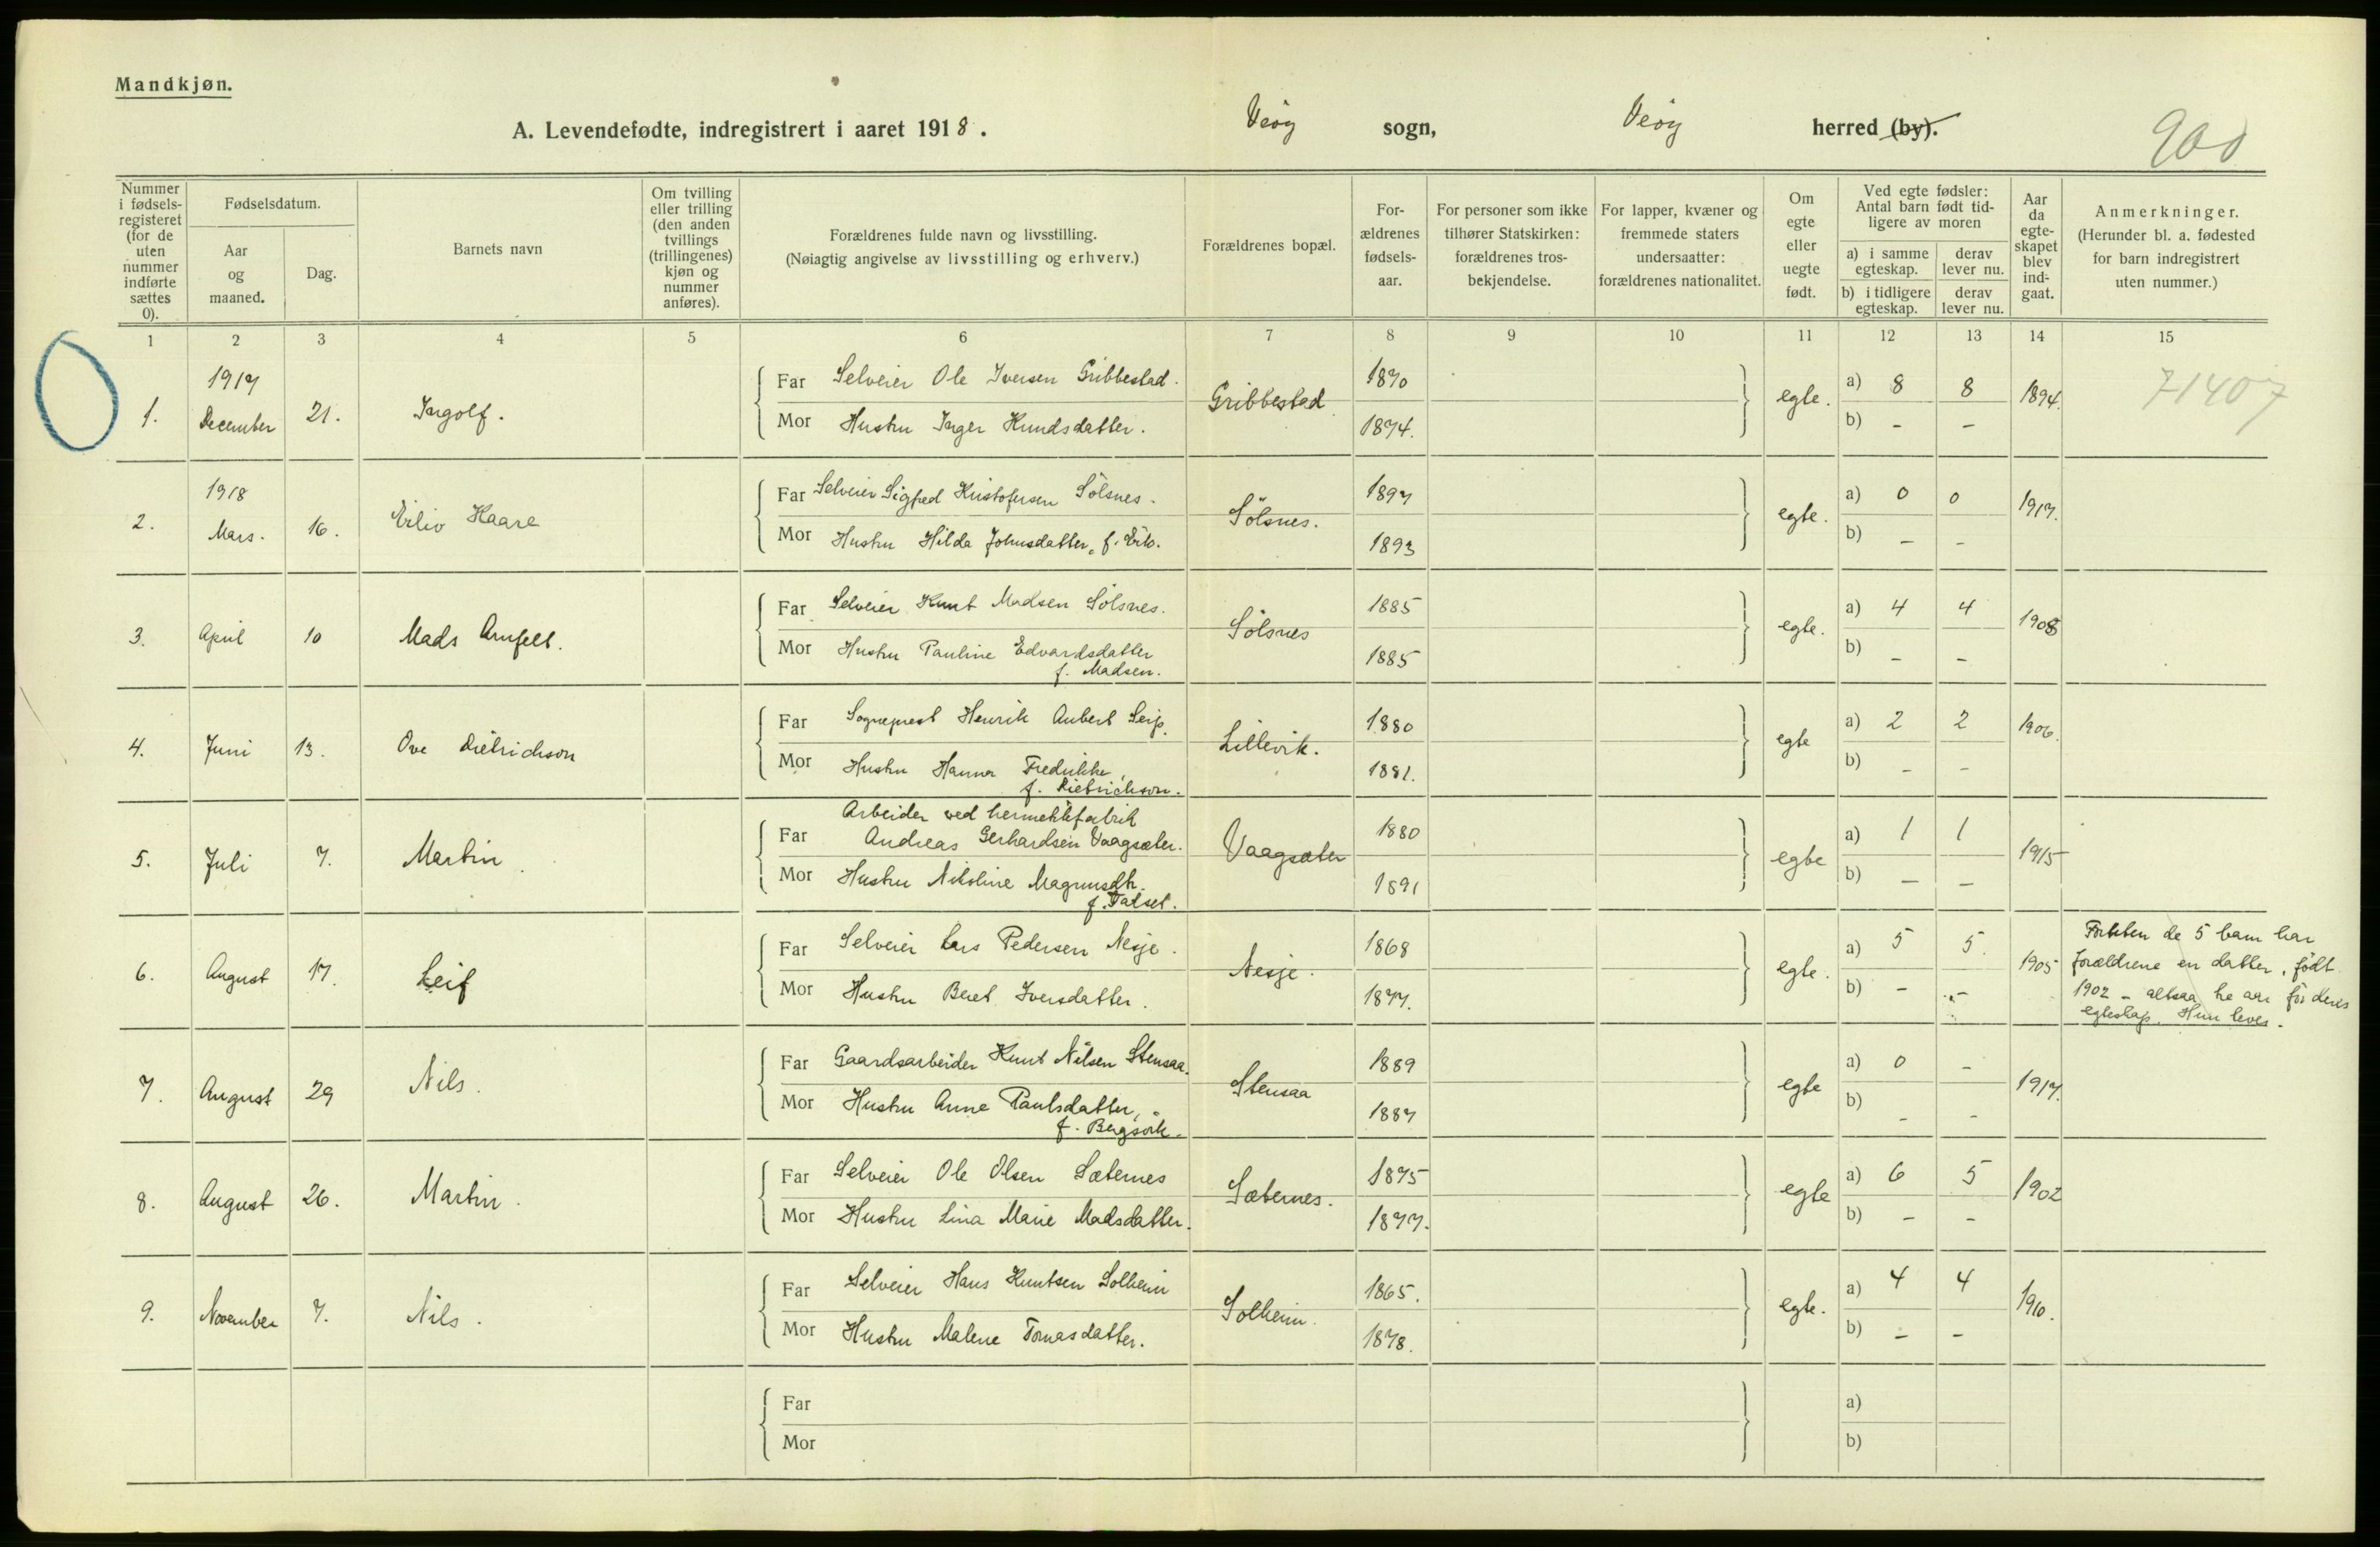 Mandkjøn.
A. Levendefødte, indregistrert i aaret 1918. Veöy sogn, Veöy herred (by). 900
Nummer i fødsels-registeret (for de uten nummer indførte sættes 0).
Fødselsdatum.
Aar og maaned.
Dag.
Barnets navn
Om tvilling eller trilling (den anden tvillings (trillingenes) kjøn og nummer anføres).
Forældrenes fulde navn og livsstilling.
(Nøiagtig angivelse av livsstilling og erhverv.)
Forældrenes bopæl.
For-ældrenes fødsels-aar.
For personer som ikke tilhører Statskirken: forældrenes tros-bekjendelse.
For lapper, kvæner og fremmede staters undersaatter: forældrenes nationalitet.
Om egte eller uegte født.
Ved egte fødsler: Antal barn født tid-ligere av moren
a) i samme egteskap. derav lever nu.
b) i tidligere egteskap. derav lever nu.
Aar da egte-skapet blev ind-gaat.
Anmerkninger.
(Herunder bl. a. fødested for barn indregistrert uten nummer.)
1 2 3 4 5 6 7 8 9 10 11 12 13 14 15
1. 1917 December 21. Ingolf. Far Selveier Ole Iversen Gribbestad. Gribbestad 1870 egte. a) 8 8 1894. 71407
Mor Hustru Inger Knudsdatter. 1874. b) - -
2. 1918 Mars. 16. Eiliv Kaare Far Selveier Sigfred Kristofersen Sölsnes. Sölsnes. 1897 egte. a) 0 0 1917.
Mor Hustru Hilda Johnsdatter, f. 1893 b) - -
3. April 10 Mads Arnfelt. Far Selveier Knut Madsen Sölsnes. Sölsnes 1885 egte. a) 4 4 1908
Mor Hustru Pauline Edvardsdatter 1885 b) - -
f. Madsen.
4. Juni 13. Ove Dietrichson Far Sogneprest Henrik Aubert Seip. Lillevik. 1880 egte a) 2 2 1906.
Mor Hustru Hanna Fredrikke, 1881. b) - -
f. Dietrichson.
Arbeider ved hermetikfabrik
5. Juli 7. Martin. Far Andreas Gerhardsen Vaagsæter. Vaagsæter 1880 egte a) 1 1 1915
Mor Hustru Nikoline Magnusdtr. 1891 b) - -
f. Talset.
6. August 17. Leif Far Selveier Lars Pedersen Nesje. Nesje. 1868 egte. a) 5 5. 1905
Mor Hustru Beret Iversdatter. 1877. b) - -
Foruten de 5 barn har
forældrene en datter, født
1902 - altsaa tre aar før deres
egteskap. Hun lever.
7. August 29 Nils. Far Gaardsarbeider Knut Nilsen Stensaa. Stensaa 1889 egte a) 0 - 1917.
Mor Hustru Anne Paulsdatter, 1887 b) - -
f. Bergsvik.
8. August 26. Martin. Far Selveier Ole Olsen Sæternes Sæternes. 1875 egte a) 6 5 1902
Mor Hustru Lina Marie Madsdatter. 1877. b) - -
9. November 7. Nils. Far Selveier Hans Knutsen Solheim Solheim. 1865. egte. a) 4 4 1910.
Mor Hustru Malene Tomasdatter. 1878. b) - -
Far a)
Mor b)